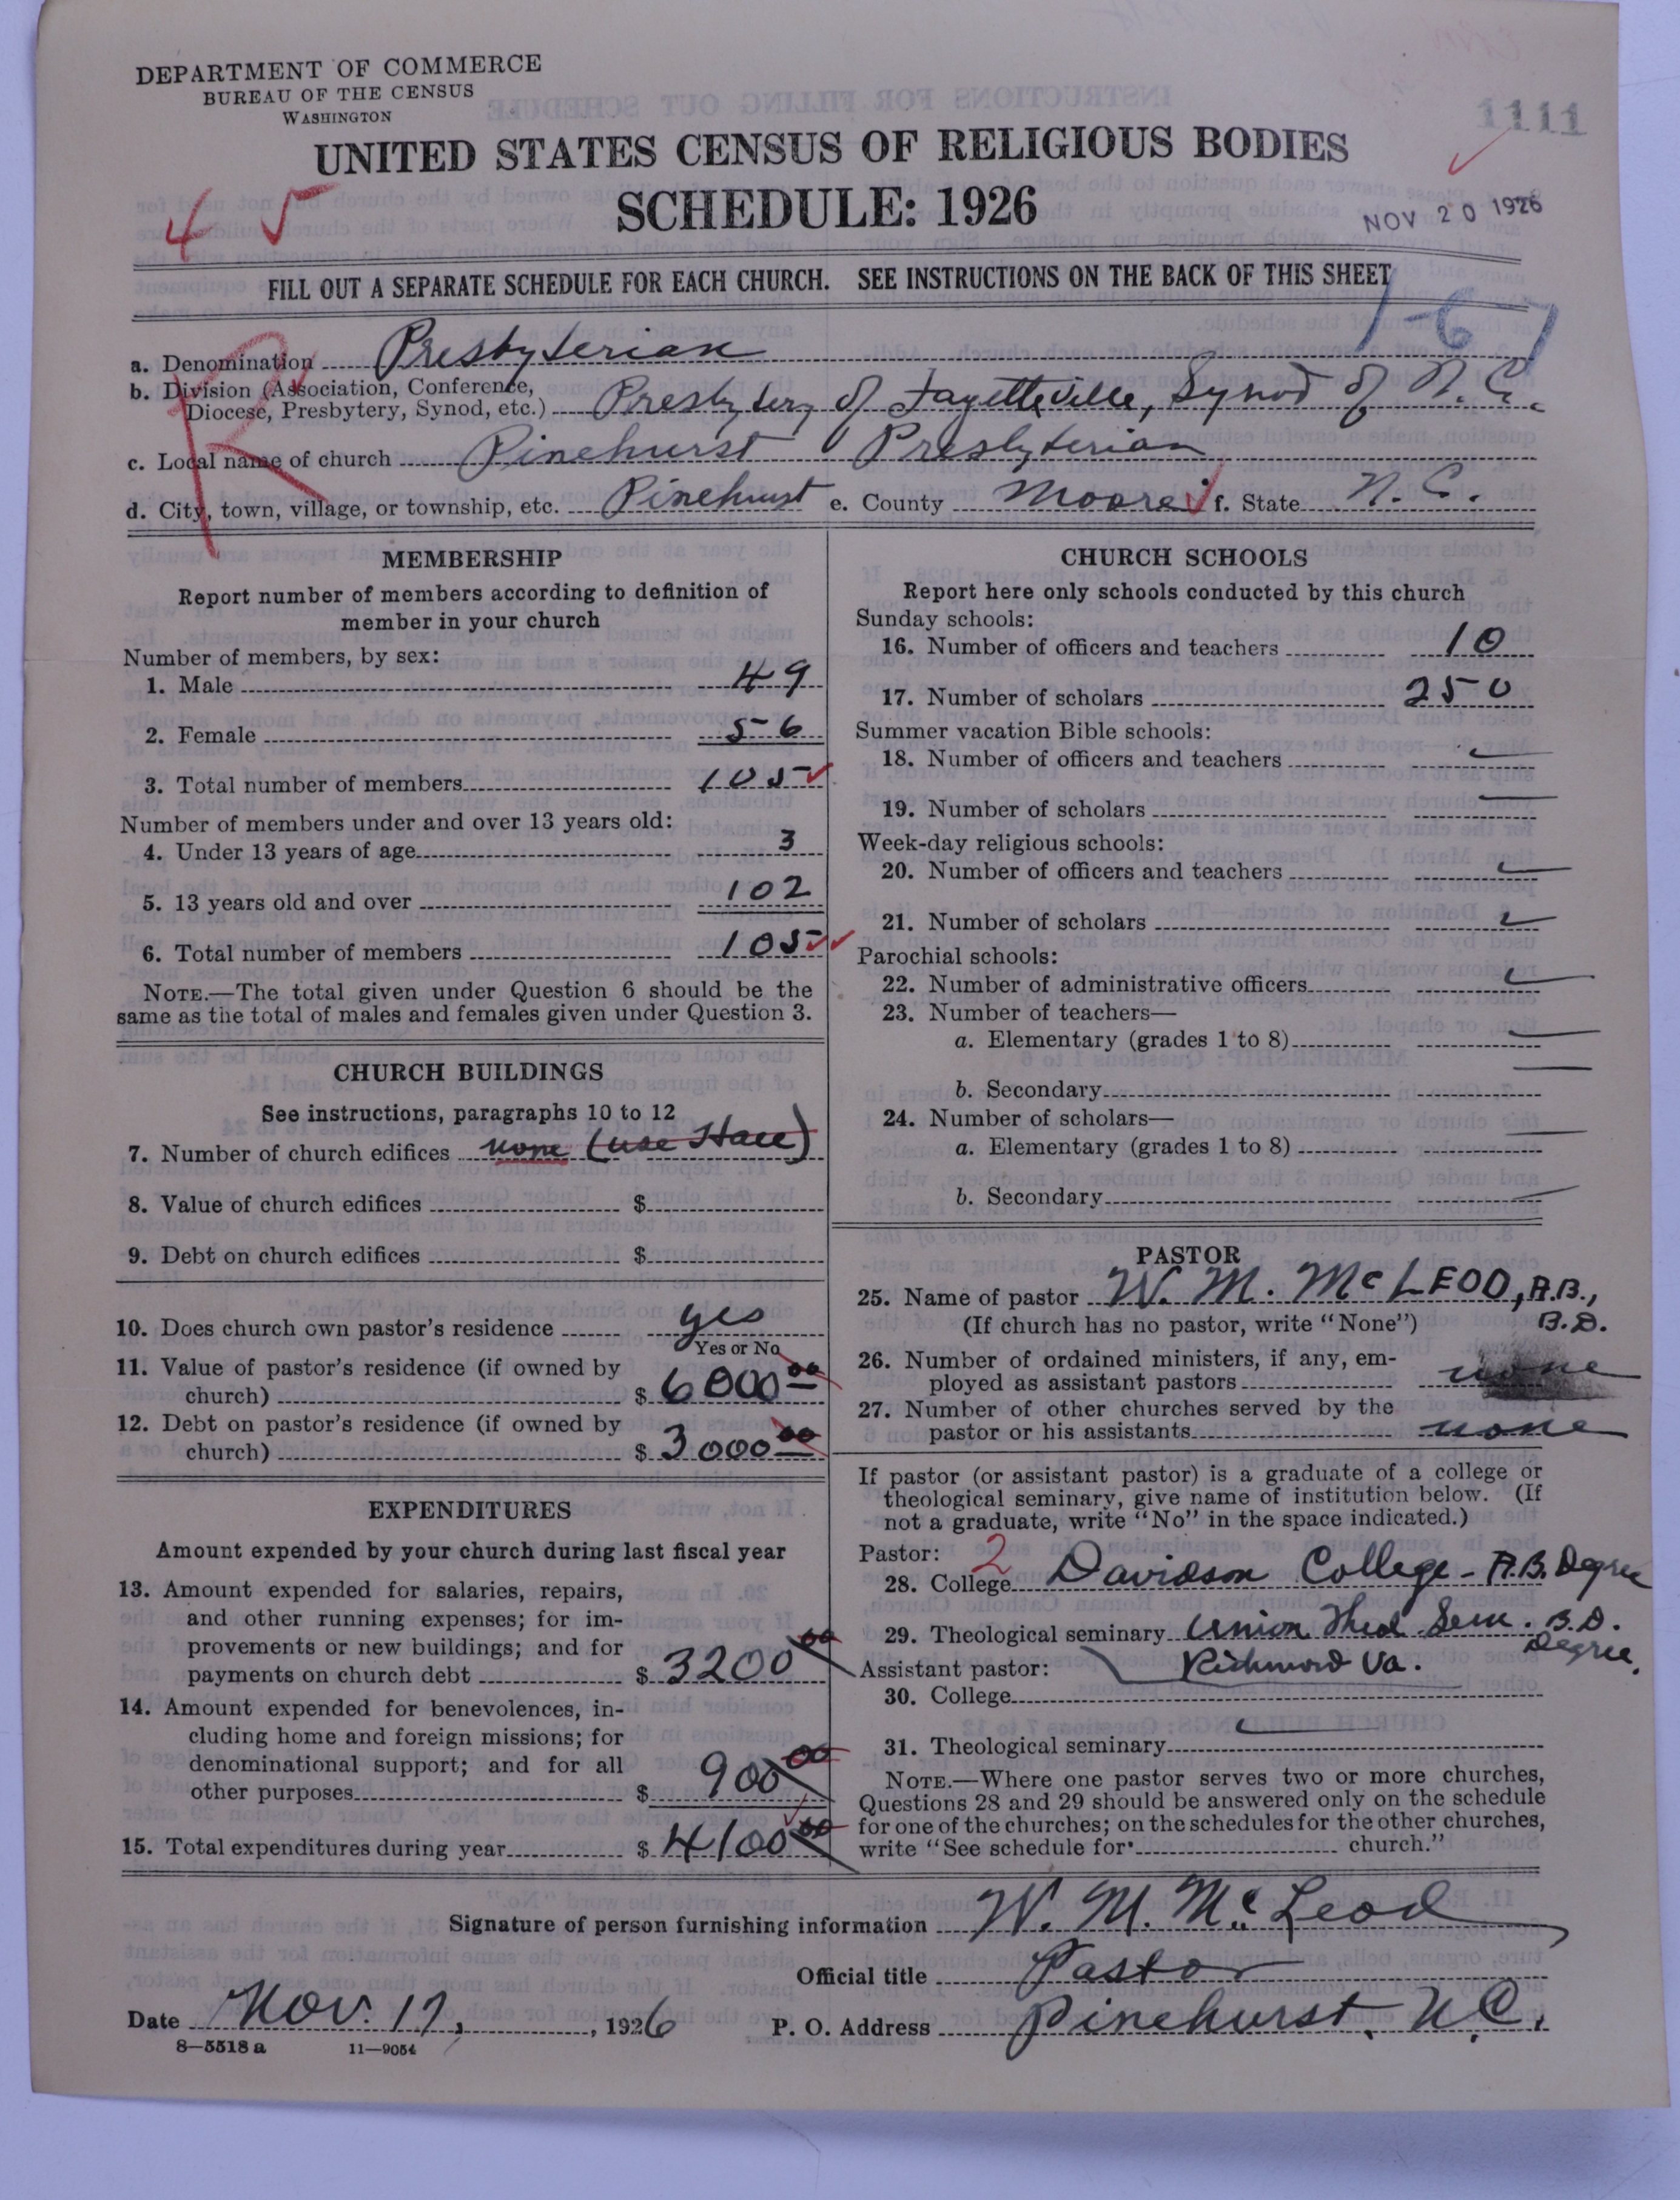 DEPARTMENT OF COMMERCE
BUREAU OF THE CENSUS
WASHINGTON
1111
UNITED STATES CENSUS OF RELIGIOUS BODIES
SCHEDULE: 1926
4 5
NOV 20 1926
FILL OUT A SEPARATE SCHEDULE FOR EACH CHURCH. SEE INSTRUCTIONS ON THE BACK OF THIS SHEET
1-67
R
a. Denomination Presbyterian
b. Division (Association, Conference,
Diocese, Presbytery, Synod, etc.) Presbytery of Fayetteville, Synod of N. C.
c. Local name of church Pinehurst Presbyterian
d. City, town, village, or township, etc. Pinehurst e. County Moore f. State N. C.
MEMBERSHIP
Report number of members according to definition of
member in your church
Number of members, by sex:
1. Male 49
2. Female 56
3. Total number of members 105
Number of members under and over 13 years old:
4. Under 13 years of age 3
5. 13 years old and over 102
6. Total number of members 105
NOTE.—The total given under Question 6 should be the
same as the total of males and females given under Question 3.
CHURCH BUILDINGS
See instructions, paragraphs 10 to 12
7. Number of church edifices none (use Hall)
8. Value of church edifices $
9. Debt on church edifices $
10. Does church own pastor's residence yes
Yes or No
11. Value of pastor's residence (if owned by
church) $ 6000 00
12. Debt on pastor's residence (if owned by
church) $ 3000 00
EXPENDITURES
Amount expended by your church during last fiscal year
13. Amount expended for salaries, repairs,
and other running expenses; for im-
provements or new buildings; and for
payments on church debt $ 3200 00
14. Amount expended for benevolences, in-
cluding home and foreign missions; for
denominational support; and for all
other purposes $ 900 00
15. Total expenditures during year $ 4100 00
CHURCH SCHOOLS
Report here only schools conducted by this church
Sunday schools:
16. Number of officers and teachers 10
17. Number of scholars 250
Summer vacation Bible schools:
18. Number of officers and teachers
19. Number of scholars
Week-day religious schools:
20. Number of officers and teachers
21. Number of scholars
Parochial schools:
22. Number of administrative officers
23. Number of teachers—
a. Elementary (grades 1 to 8)
b. Secondary
24. Number of scholars—
a. Elementary (grades 1 to 8)
b. Secondary
PASTOR
25. Name of pastor W. M. McLEOD, A.B.,
(If church has no pastor, write "None") B.D.
26. Number of ordained ministers, if any, em-
ployed as assistant pastors none
27. Number of other churches served by the
pastor or his assistants none
If pastor (or assistant pastor) is a graduate of a college or
theological seminary, give name of institution below. (If
not a graduate, write "No" in the space indicated.)
Pastor: 2
28. College Davidson College - A.B. Degree
29. Theological seminary Union Theol. Sem. B.D.
Degree.
Assistant pastor: Richmond Va.
30. College
31. Theological seminary
NOTE.—Where one pastor serves two or more churches,
Questions 28 and 29 should be answered only on the schedule
for one of the churches; on the schedules for the other churches,
write "See schedule for church."
Signature of person furnishing information W. M. McLeod
Official title Pastor
Date Nov. 17, 1926 P. O. Address Pinehurst, N.C.
8—5518 a 11—9054